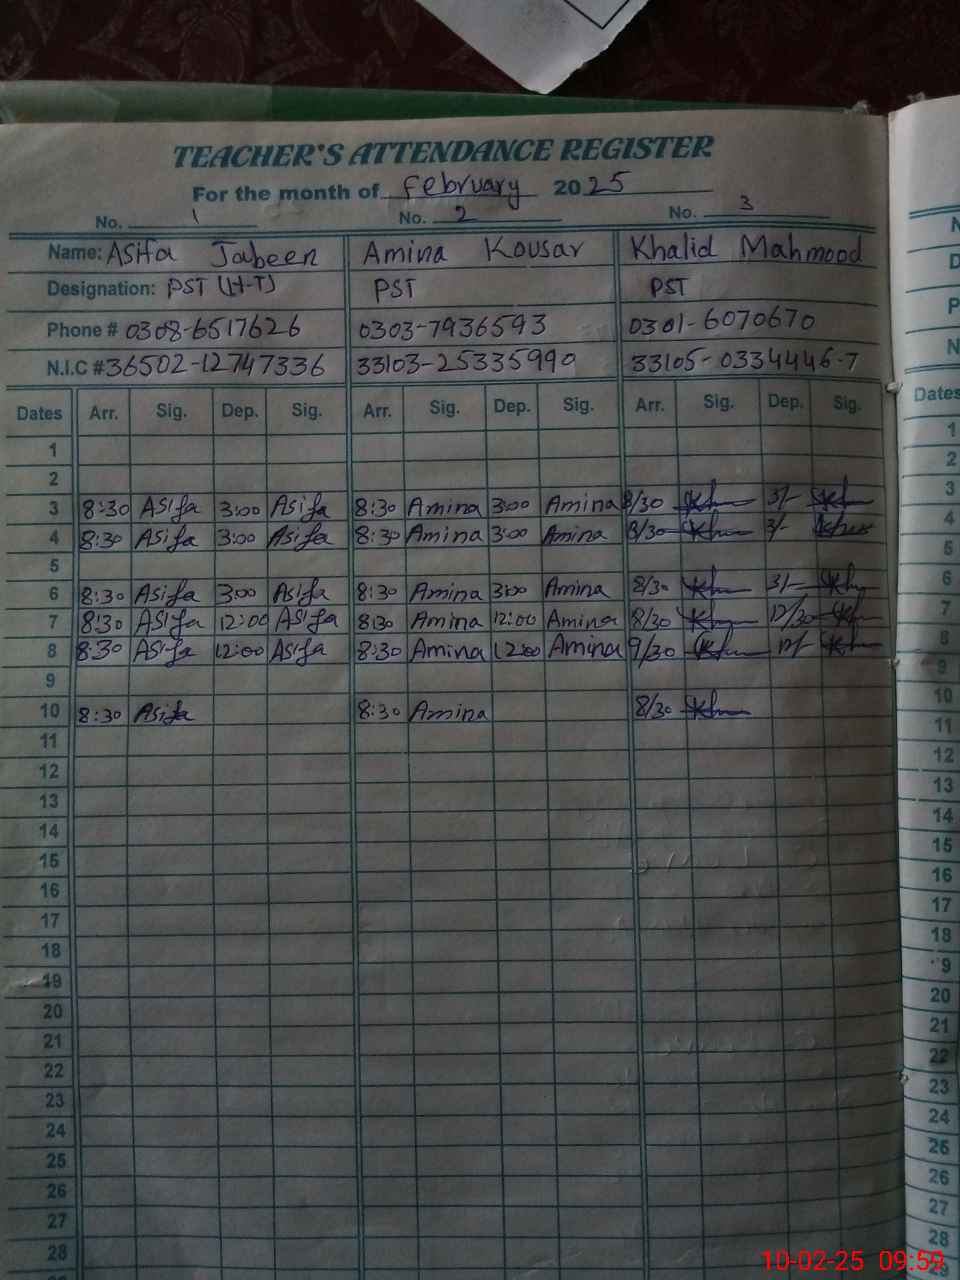 TEACHER'S ATTENDANCE REGISTER
For the month of February 2025
No. 1 No. 2 No. 3
Name: Asifa Jabeen Amina Kousar Khalid Mahmood
Designation: PST (H-T) PST PST
Phone # 0308-6517626 0303-7936593 0301-6070670
N.I.C # 36502-12747336 33103-25335990 33105-0334446-7
Dates Arr. Sig. Dep. Sig. Arr. Sig. Dep. Sig. Arr. Sig. Dep. Sig. Dates
1 1
2 2
3 8:30 Asifa 3:00 Asifa 8:30 Amina 3:00 Amina 8/30 3/- 3
4 8:30 Asifa 3:00 Asifa 8:30 Amina 3:00 Amina 8/30 3/- 4
5 5
6 8:30 Asifa 3:00 Asifa 8:30 Amina 3:00 Amina 8/30 3/- 6
7 8:30 Asifa 12:00 Asifa 8:30 Amina 12:00 Amina 8/30 12/30 7
8 8:30 Asifa 12:00 Asifa 8:30 Amina 12:00 Amina 9/30 12/- 8
9 9
10 8:30 Asifa 8:30 Amina 8/30 10
11 11
12 12
13 13
14 14
15 15
16 16
17 17
18 18
19 9
20 20
21 21
22 22
23 23
24 24
25 25
26 26
27 27
28 28
29
10-02-25 09:59